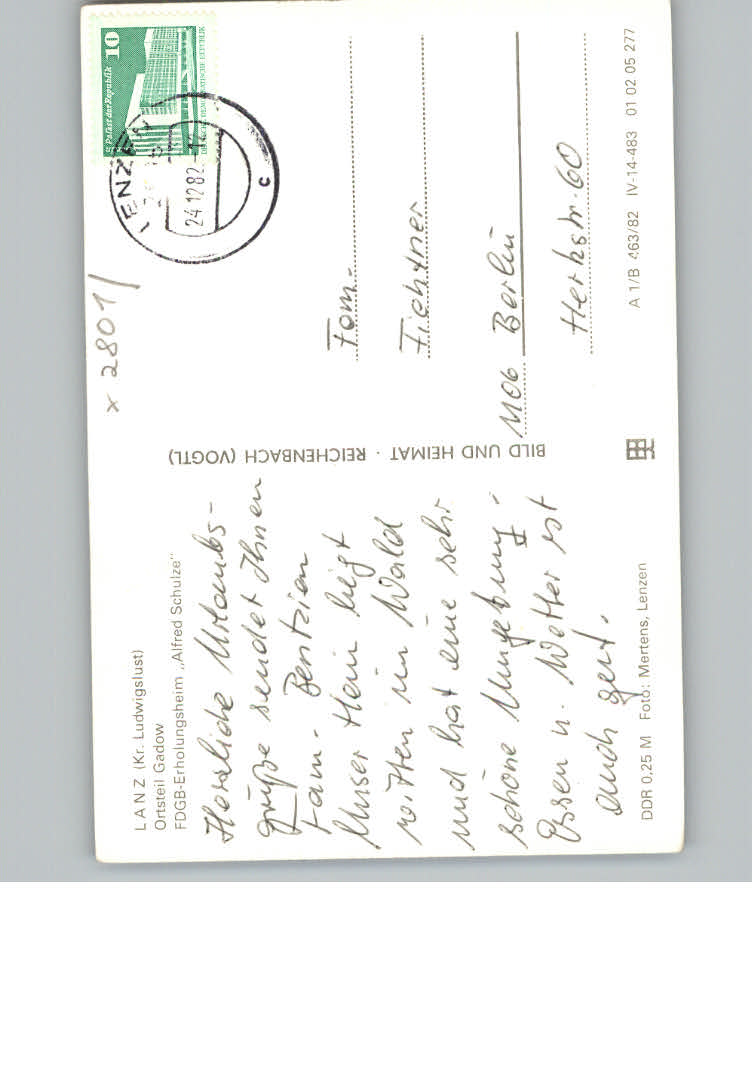 LANZ (Kr. Ludwigslust)
Ortsteil Gadow
FDGB-Erholungsheim „Alfred Schulze"
Herzliche Urlaubs-
grüße sendet Ihnen
Fam. Bentzien
Unser Heim liegt
mitten im Wald
und hat eine sehr
schöne Umgebung.
Essen u. Wetter ist
auch gut.
DDR 0,25 M Foto: Mertens, Lenzen
BILD UND HEIMAT · REICHENBACH (VOGTL)
x 2801/
10
Palast der Republik
DEUTSCHE DEMOKRATISCHE REPUBLIK
LENZEN
24.12.82
c
Fam.
Fichtner
1106 Berlin
60
A 1/B 463/82 IV-14-483 01 02 05 277